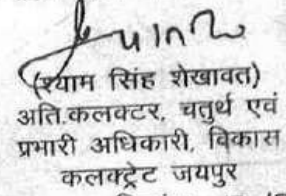 (श्याम सिंह शेखावत)
अति.कलक्टर, चतुर्थ एवं
प्रभारी अधिकारी, विकास
कलक्ट्रेट जयपुर